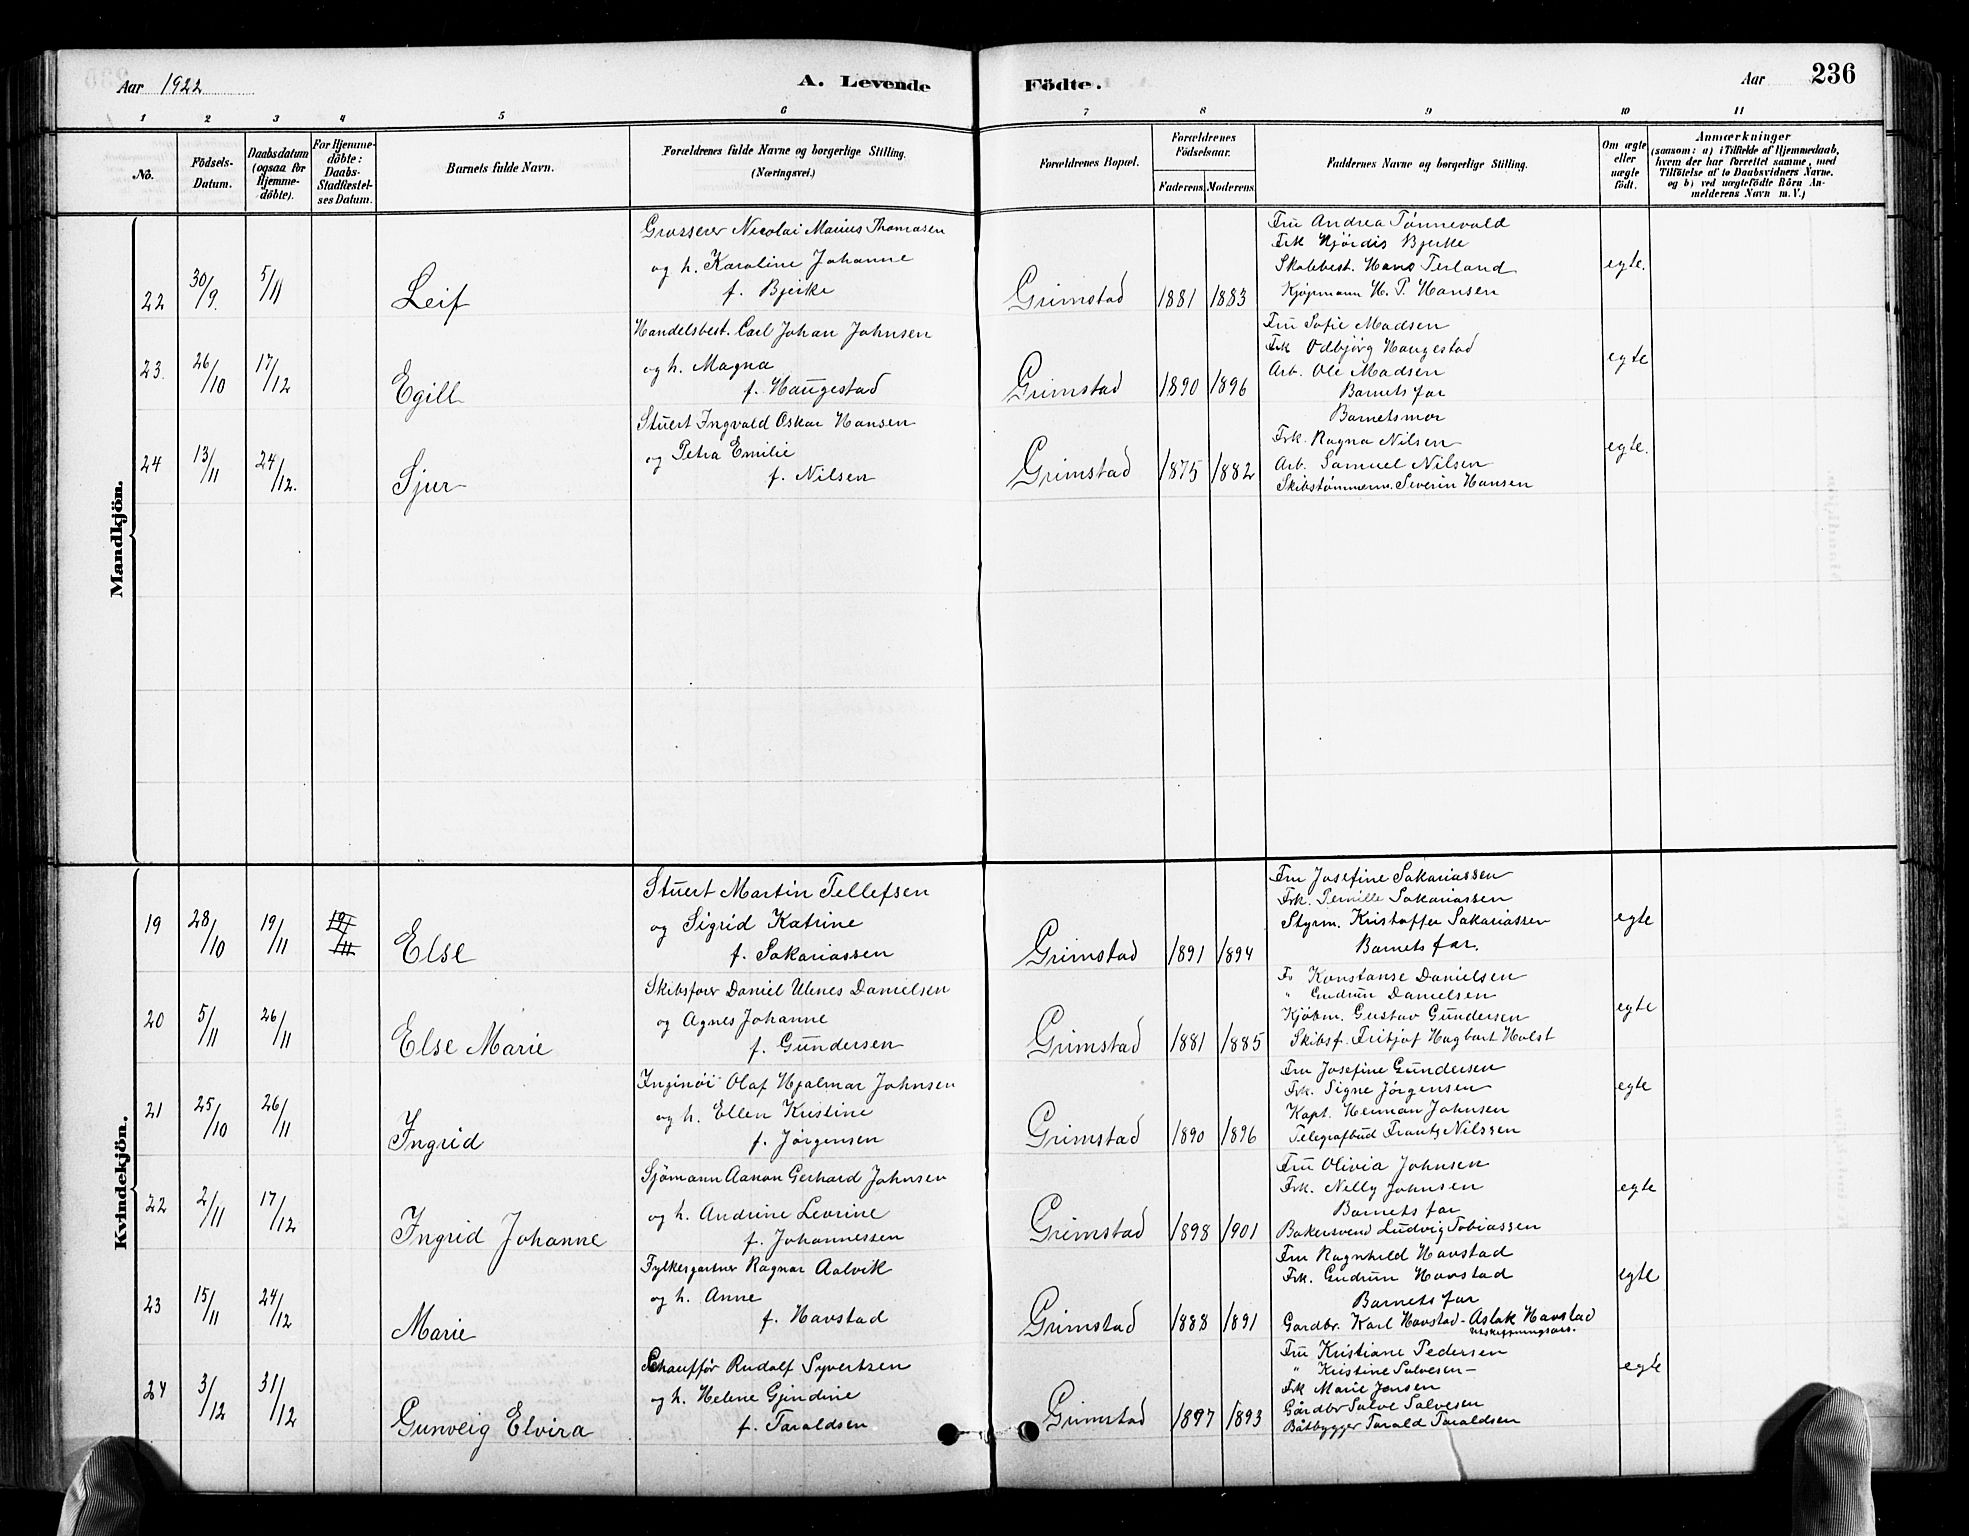 Aar 1922
A. Levende Födte.
Aar 236
1 2 3 4 5 6 7 8 9 10 11
No.
Födsels-Datum.
Daabsdatum (ogsaa for Hjemme-döbte).
For Hjemme-döbte: Daabs-Stadfæstel-ses Datum.
Barnets fulde Navn.
Forældrenes fulde Navne og borgerlige Stilling. (Næringsvei.)
Forældrenes Bopæl.
Forældrenes Födselsaar.
Faderens. Moderens.
Faddernes Navne og borgerlige Stilling.
Om ægte eller uægte födt.
Anmærkninger
(saasom: a) i Tilfælde af Hjemmedaab,
hvem der har forrettet samme, med
Tilföielse af to Daabsvidners Navne.
og b) ved uægtefödte Börn An-
melderens Navn m. V.)
Mandkjön.
22 30/9. 5/11 Leif
Grosserer Nicolai Marius Thomasen
og h. Karoline Johanne
f. Bjerke
Grimstad 1881 1883
Fru Andrea Tønnevold
Frk Hjördis Bjerke
Skolebest. Hans Terland
Kjøpmann H. P. Hansen
egte.
23. 26/10 17/12 Egill
Handelsbest. Carl Johan Johnsen
og h. Magna
f. Haugestad
Grimstad 1890 1896
Fru Sofie Madsen
Frk Odbjørg Haugestad
Arb. Ole Madsen
Barnets far
egte
24 13/11 24/12. Sjur
Stuert Ingvald Oskar Hansen
og Petra Emilie
f. Nilsen
Grimstad 1875 1882
Barnetsmor
Frk. Ragna Nilsen
Arb. Samuel Nilsen
Skibstömmerm. Severin Hansen
egte.
Kvindekjön.
19 28/10 19/11 19/11 Else
Stuert Martin Tellefsen
og Sigrid Katrine
f. Sakariassen
Grimstad 1891 1894
Fru Josefine Sakariassen
Frk. Pernille Sakariassen
Styrm. Kristoffer Sakariassen
Barnets far.
egte
20 5/11 26/11 Else Marie
Skibsfører Daniel Ulenes Danielsen
og Agnes Johanne
f. Gundersen
Grimstad 1881 1885
Fr Konstanse Danielsen
" Gudrun Danielsen
Kjøbm. Gustav Gundersen
Skibsf. Fritjof Hagbart Holst
egte
21 25/10 26/11 Ingrid
Inginöi Olaf Hjalmar Johnsen
og h. Ellen Kristine
f. Jørgensen
Grimstad 1890 1896
Fru Josefine Gundersen
Frk. Signe Jörgensen
Kapt. Herman Johnsen
Telegrafbud Frantz Nilssen
egte
22 2/11 17/12 Ingrid Johanne
Sjømann Aanon Gerhard Johnsen
og h. Andrine Levrine
f. Johannessen
Grimstad 1898 1901
Fru Olivia Johnsen
Frk. Nelly Johnsen
Barnets far
Bakersvend Ludvig Tobiassen
egte
23 15/11 24/12 Marie
Fylkesgartner Ragnar Aalvik
og h. Anne
f. Havstad
Grimstad 1888 1891
Fru Ragnhild Havstad
Frk. Gudrun Havstad
Barnets far
Gardbr. Karl Havstad - Aslak Havstad
egte
24 3/12 31/12 Gunveig Elvira
Schauffør Rudolf Syvertsen
og h. Helene Gjendine
f. Taraldsen
Grimstad 1897 1893
Fru Kristiane Pedersen
" Kristine Salvesen -
Frk Marie Jensen
Gårdbr Salve Salvesen
Båtbygger Tarald Taraldsen
egte